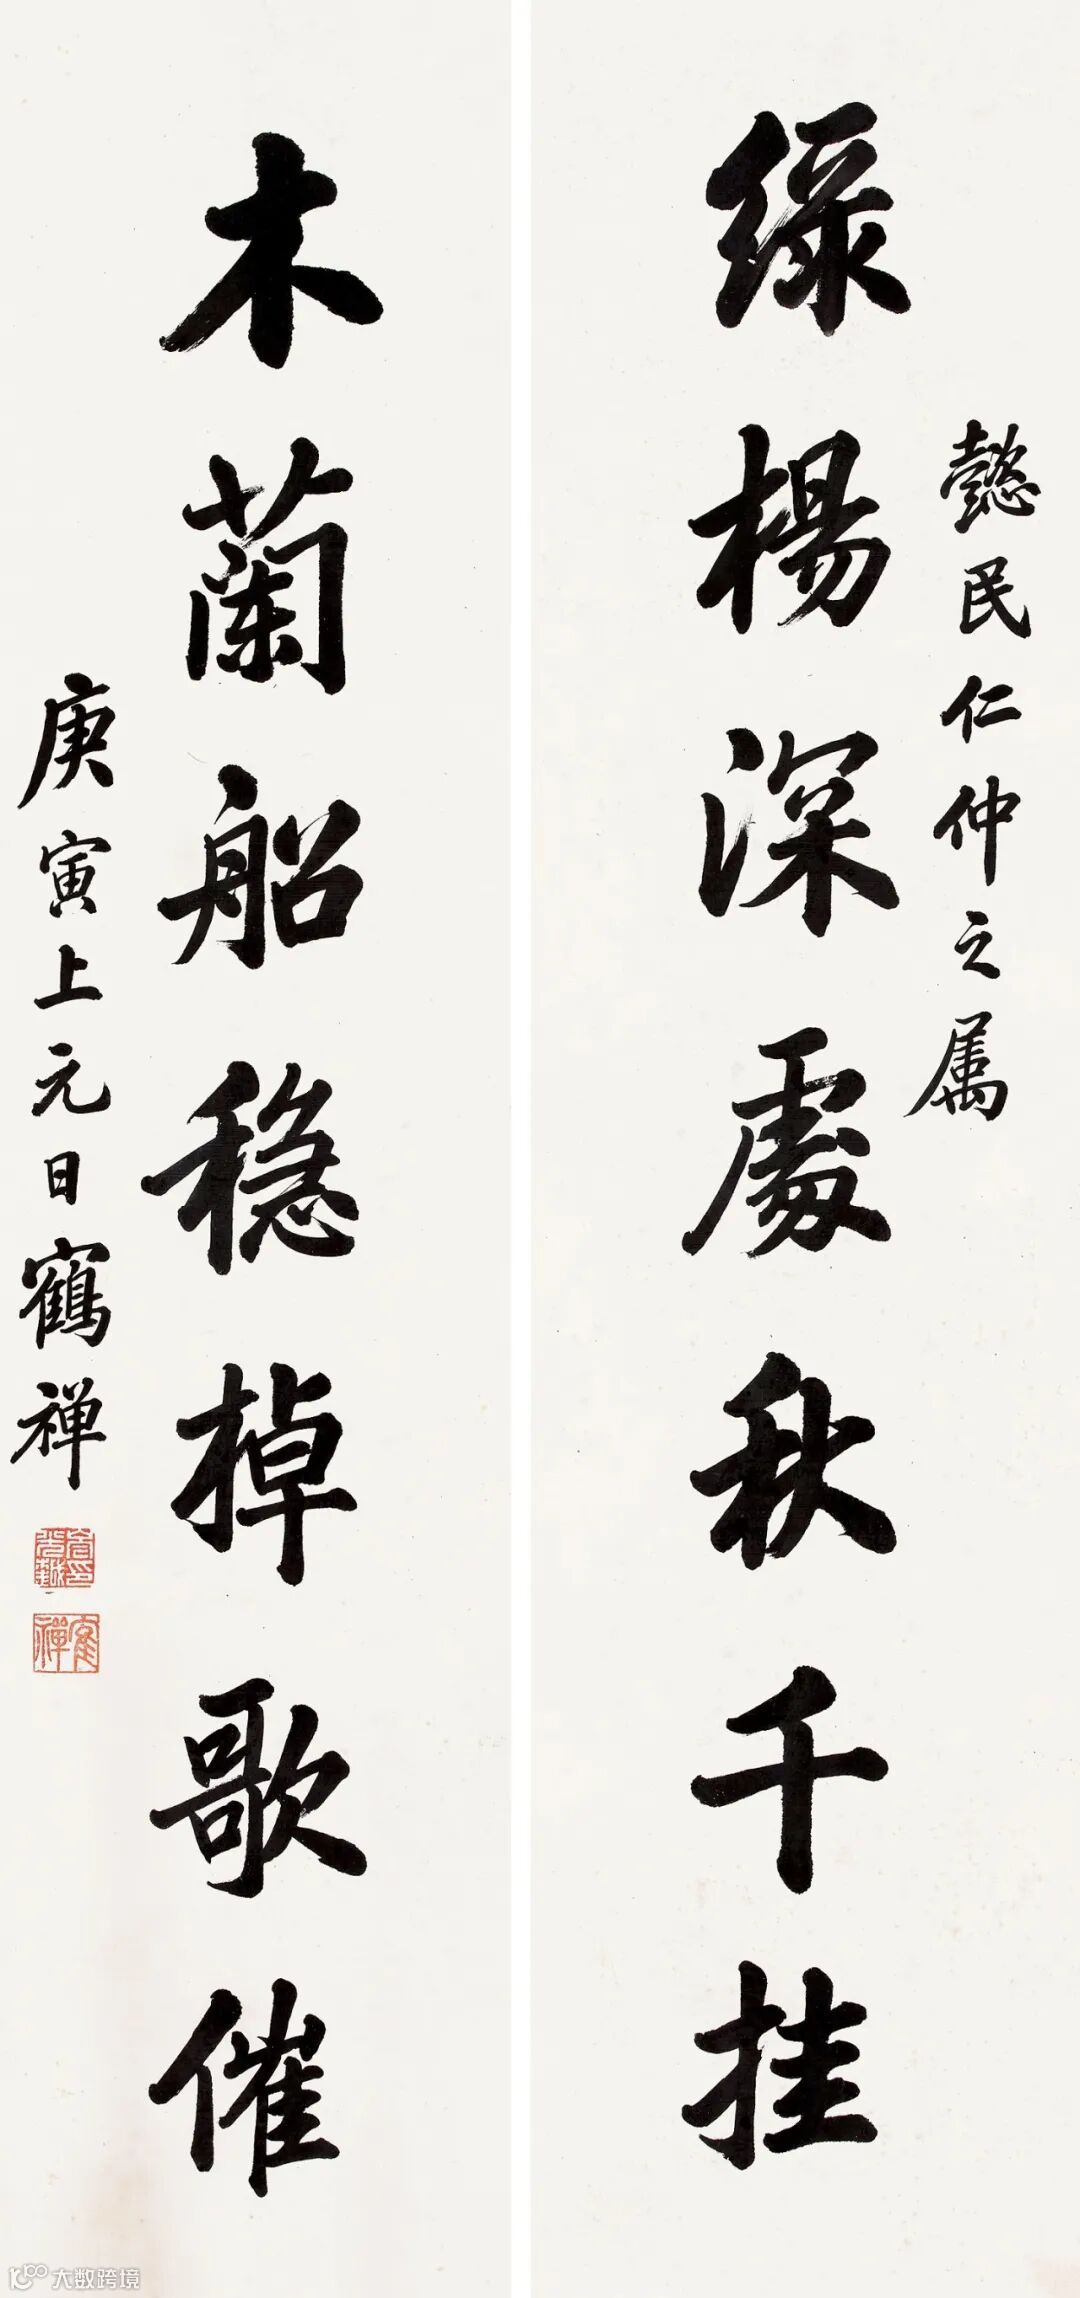 懿民仁仲之属
绿杨深處秋千挂
木蘭船稳棹歌催
庚寅上元日鶴禅
大数跨境